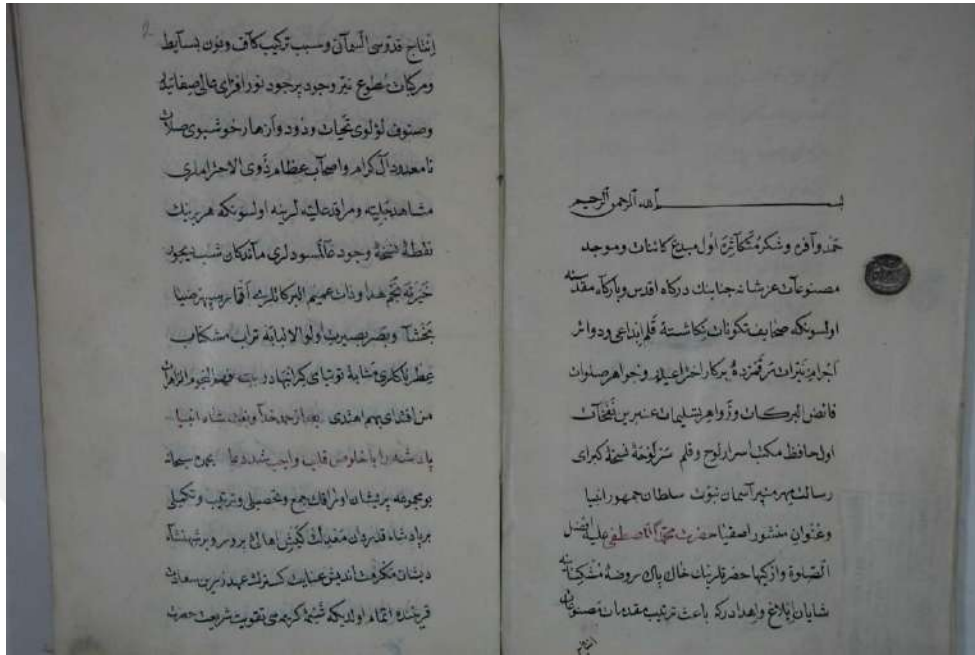 بسم الله الرحمن الرحيم
حمد وآفرين وشكر متكاثره اول مبدع كائنات وموجد
مصنوعات عز شانه جنابنك درگاه اقدس وبارگاه مقدسنه
اولسونكه صحايف تكونات نگاشتهٔ قلم ابداعى ودوائر
اجرام نيرات ترقمزدهٔ پرگار اختراعيدر وجواهر صلوات
فائض البركات وزواهر تسليمات عنبرين نفحات
اول حافظ مكتب اسرار لوح وقلم سرلوحهٔ نسخهٔ كبراى
رسالت مهر منير آسمان نبوت سلطان جمهور انبيا
وعنوان منشور اصفيا حضرت محمد المصطفى عليه افضل
الصلوة وازكيها حضرتلرينك خاك پاك روضهٔ مشكينانه
شايان ابلاغ واهدادركه باعث ترتيب مقدمات مصنوعات
انتاج
انتاج قدوسى السمآئى وسبب تركيب كاف ونون بسايط
ومركبات طلوع نير وجود پرجود نور افزاى عالى صفاتيدر
وصنوف لؤلوى تحيات ودود وازهار خوشبوى صلات
نامعدود آل كرام واصحاب عظام ذوى الاحتراملرى
مشاهد جليه ومراقد عليه لرينه اولسونكه هر برينك
نقطهٔ نسخهٔ وجود
نجم هدا وذات عميم البركاتلرى اقمار سپهر ضيا
بخشا وبصر بصيرت اولو الالبابه تراب مشكاب
عطرناكلرى مشابهٔ توتياى كرانبهادر فهم النجوم الزاهرات
من اقتداى بهم اهتدى بعد از حمد خدا ونعت شاه انبيا
پادشه را با خلوص قلب واجب شد دعا
بو مجموعه پريشان اوراقك جمع وتحصيلى وترتيب وتكميلى
بر پادشاه قدردان معدلت
عنايت كسترك عهد زرين سعادت
اتمام اولديكه شيمهٔ كريمه سى تقويت شريعت حضرت